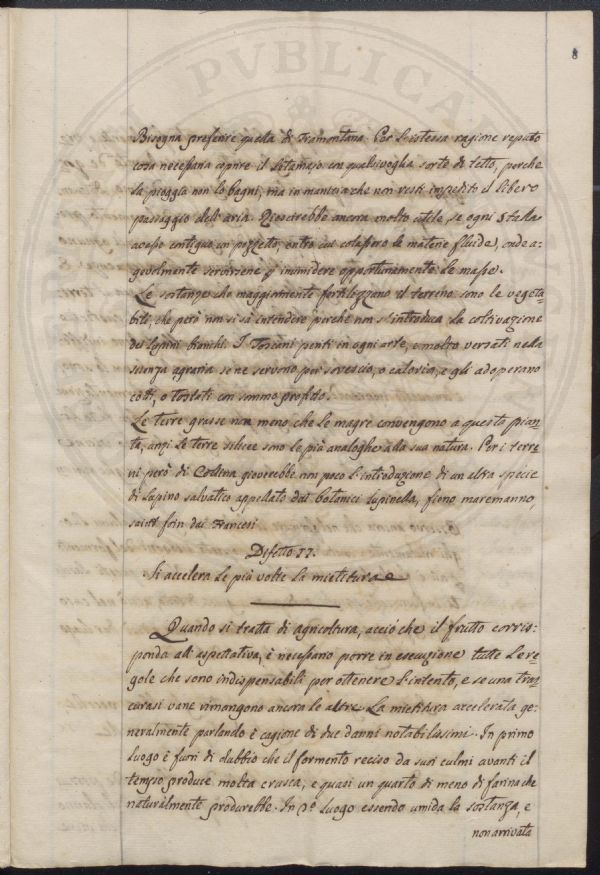 8
Bisogna preferire quella di Tramontana. Per l'istessa ragione reputo
cosa necessaria coprire il letamajo con qualsivoglia sorte di tetto, perche
la pioggia non lo bagni, ma in maniera che non resti impedito il libero
passaggio dell'aria. Riescirebbe ancora molto utile, se ogni stalla
avesse contiguo un pozzetto, entro cui colassero le materie fluide, onde a-
gevolmente servirsene p inumidire opportunamente le masse.
Le sostanze che maggiormente fertilizzano il terreno sono le vegeta-
bili, che però non si sà intendere perche non s'introduca la coltivazione
dei Lupini bianchi. I Toscani periti in ogni arte, e molto versati nella
scienza agraria se ne servono per sovescio, o caloria, e gli adoperano
cotti, o tostati con sommo profitto.
Le terre grasse non meno, che le magre convengono a questa pian-
ta, anzi le terre silicee sono le più analoghe alla sua natura. Per i terre-
ni però di Collina gioverebbe non poco l'introduzione di un altra specie
di lupino salvatico appellato dai botanici Lupinella, fieno maremanno,
saint foin dai Francesi
Difetto II.
Si accelera le più volte la mietitura
Quando si tratta di agricoltura, acciò che il frutto corris:
ponda all'aspettativa, è necessario porre in esecuzione tutte le re-
gole che sono indispensabili per ottenere l'intento, e se una tras-
curasi vane rimangono ancora le altre. La mietitura accelerata ge-
neralmente parlando è cagione di due danni notabilissimi. In primo
luogo è fuori di dubbio che il formento reciso da suoi culmi avanti il
tempo produce molta crusca, e quasi un quarto di meno di farina che
naturalmente produrebbe. In 2.º luogo essendo umida la sostanza, e
non arrivata
PVBLICA